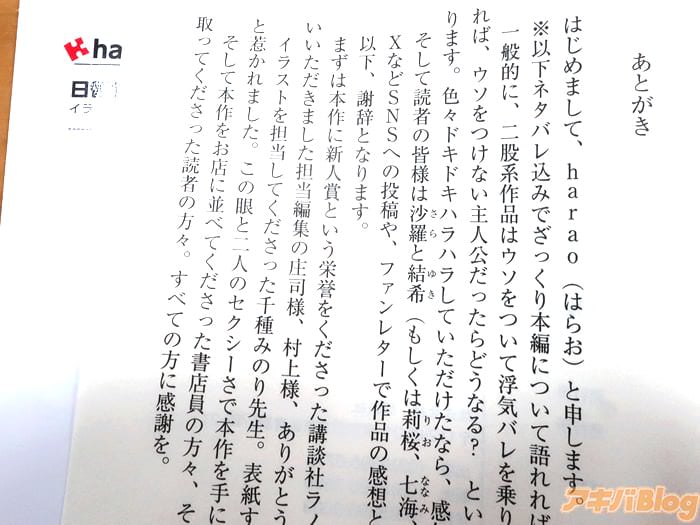 あとがき
はじめまして、harao（はらお）と申します。
※以下ネタバレ込みでざっくり本編について語れれば
一般的に、二股系作品はウソをついて浮気バレを乗り
れば、ウソをつけない主人公だったらどうなる？　とい
ります。色々ドキドキハラハラしていただけたなら、感
そして読者の皆様は沙羅と結希（もしくは莉桜、七海、
さら　ゆき　りお　ななみ
XなどSNSへの投稿や、ファンレターで作品の感想と
以下、謝辞となります。
まずは本作に新人賞という栄誉をくださった講談社ラノ
いいただきました担当編集の庄司様、村上様、ありがとう
イラストを担当してくださった千種みのり先生。表紙す
と惹かれました。この眼と二人のセクシーさで本作を手に
そして本作をお店に並べてくださった書店員の方々、そ
取ってくださった読者の方々。すべての方に感謝を。
ha
日
イラ
アキバBlog